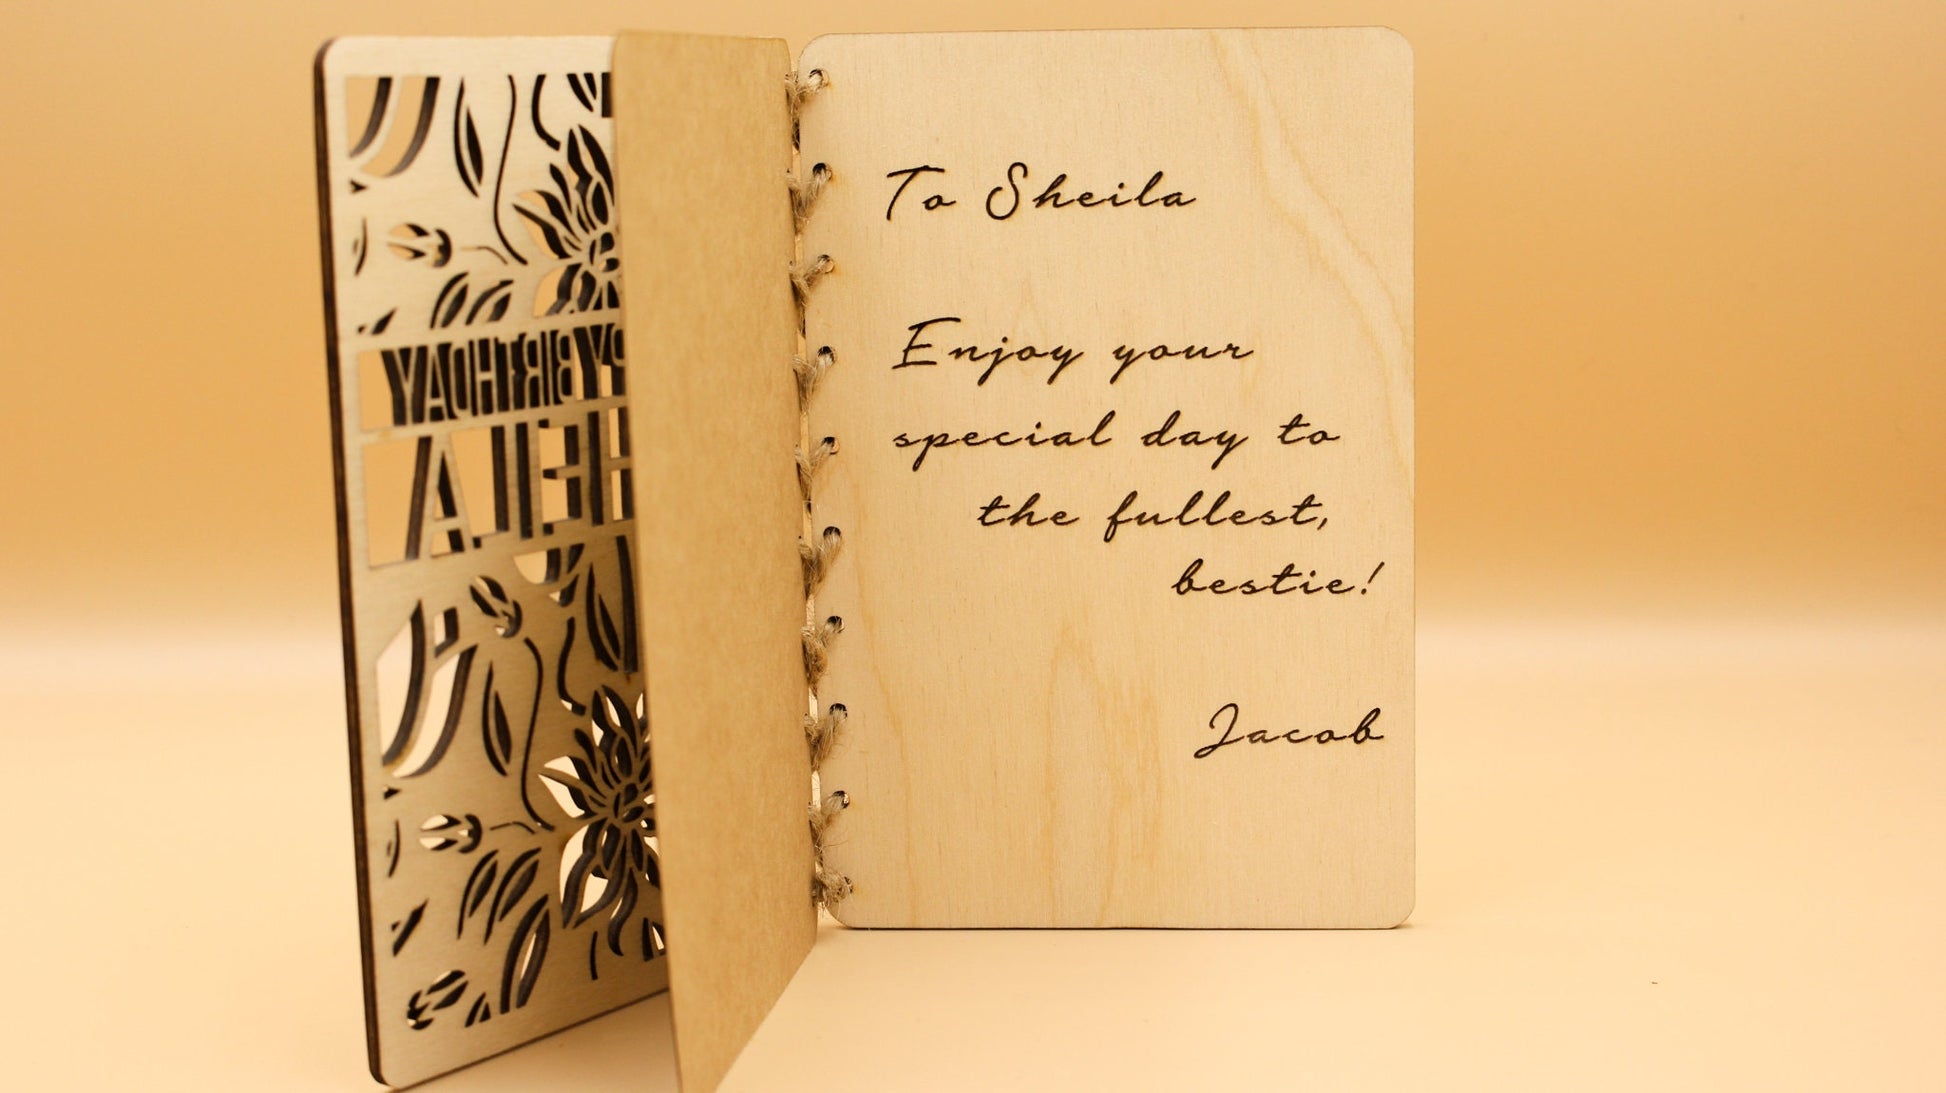 BIRTHDAY
To Sheila
Enjoy your
special day to
the fullest,
bestie!
Jacob